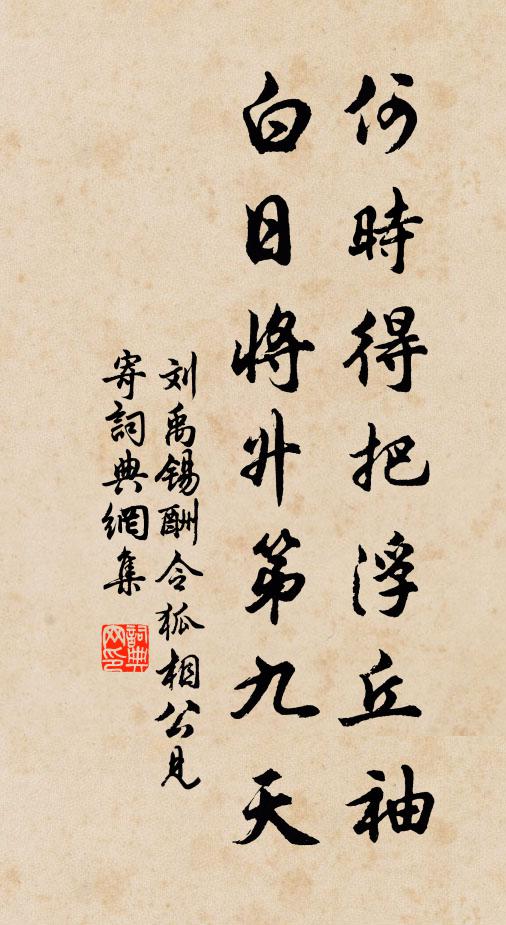 何時得把浮丘袖
白日將升第九天
刘禹锡酬令狐相公見
寄詞典網集
詞典
网印